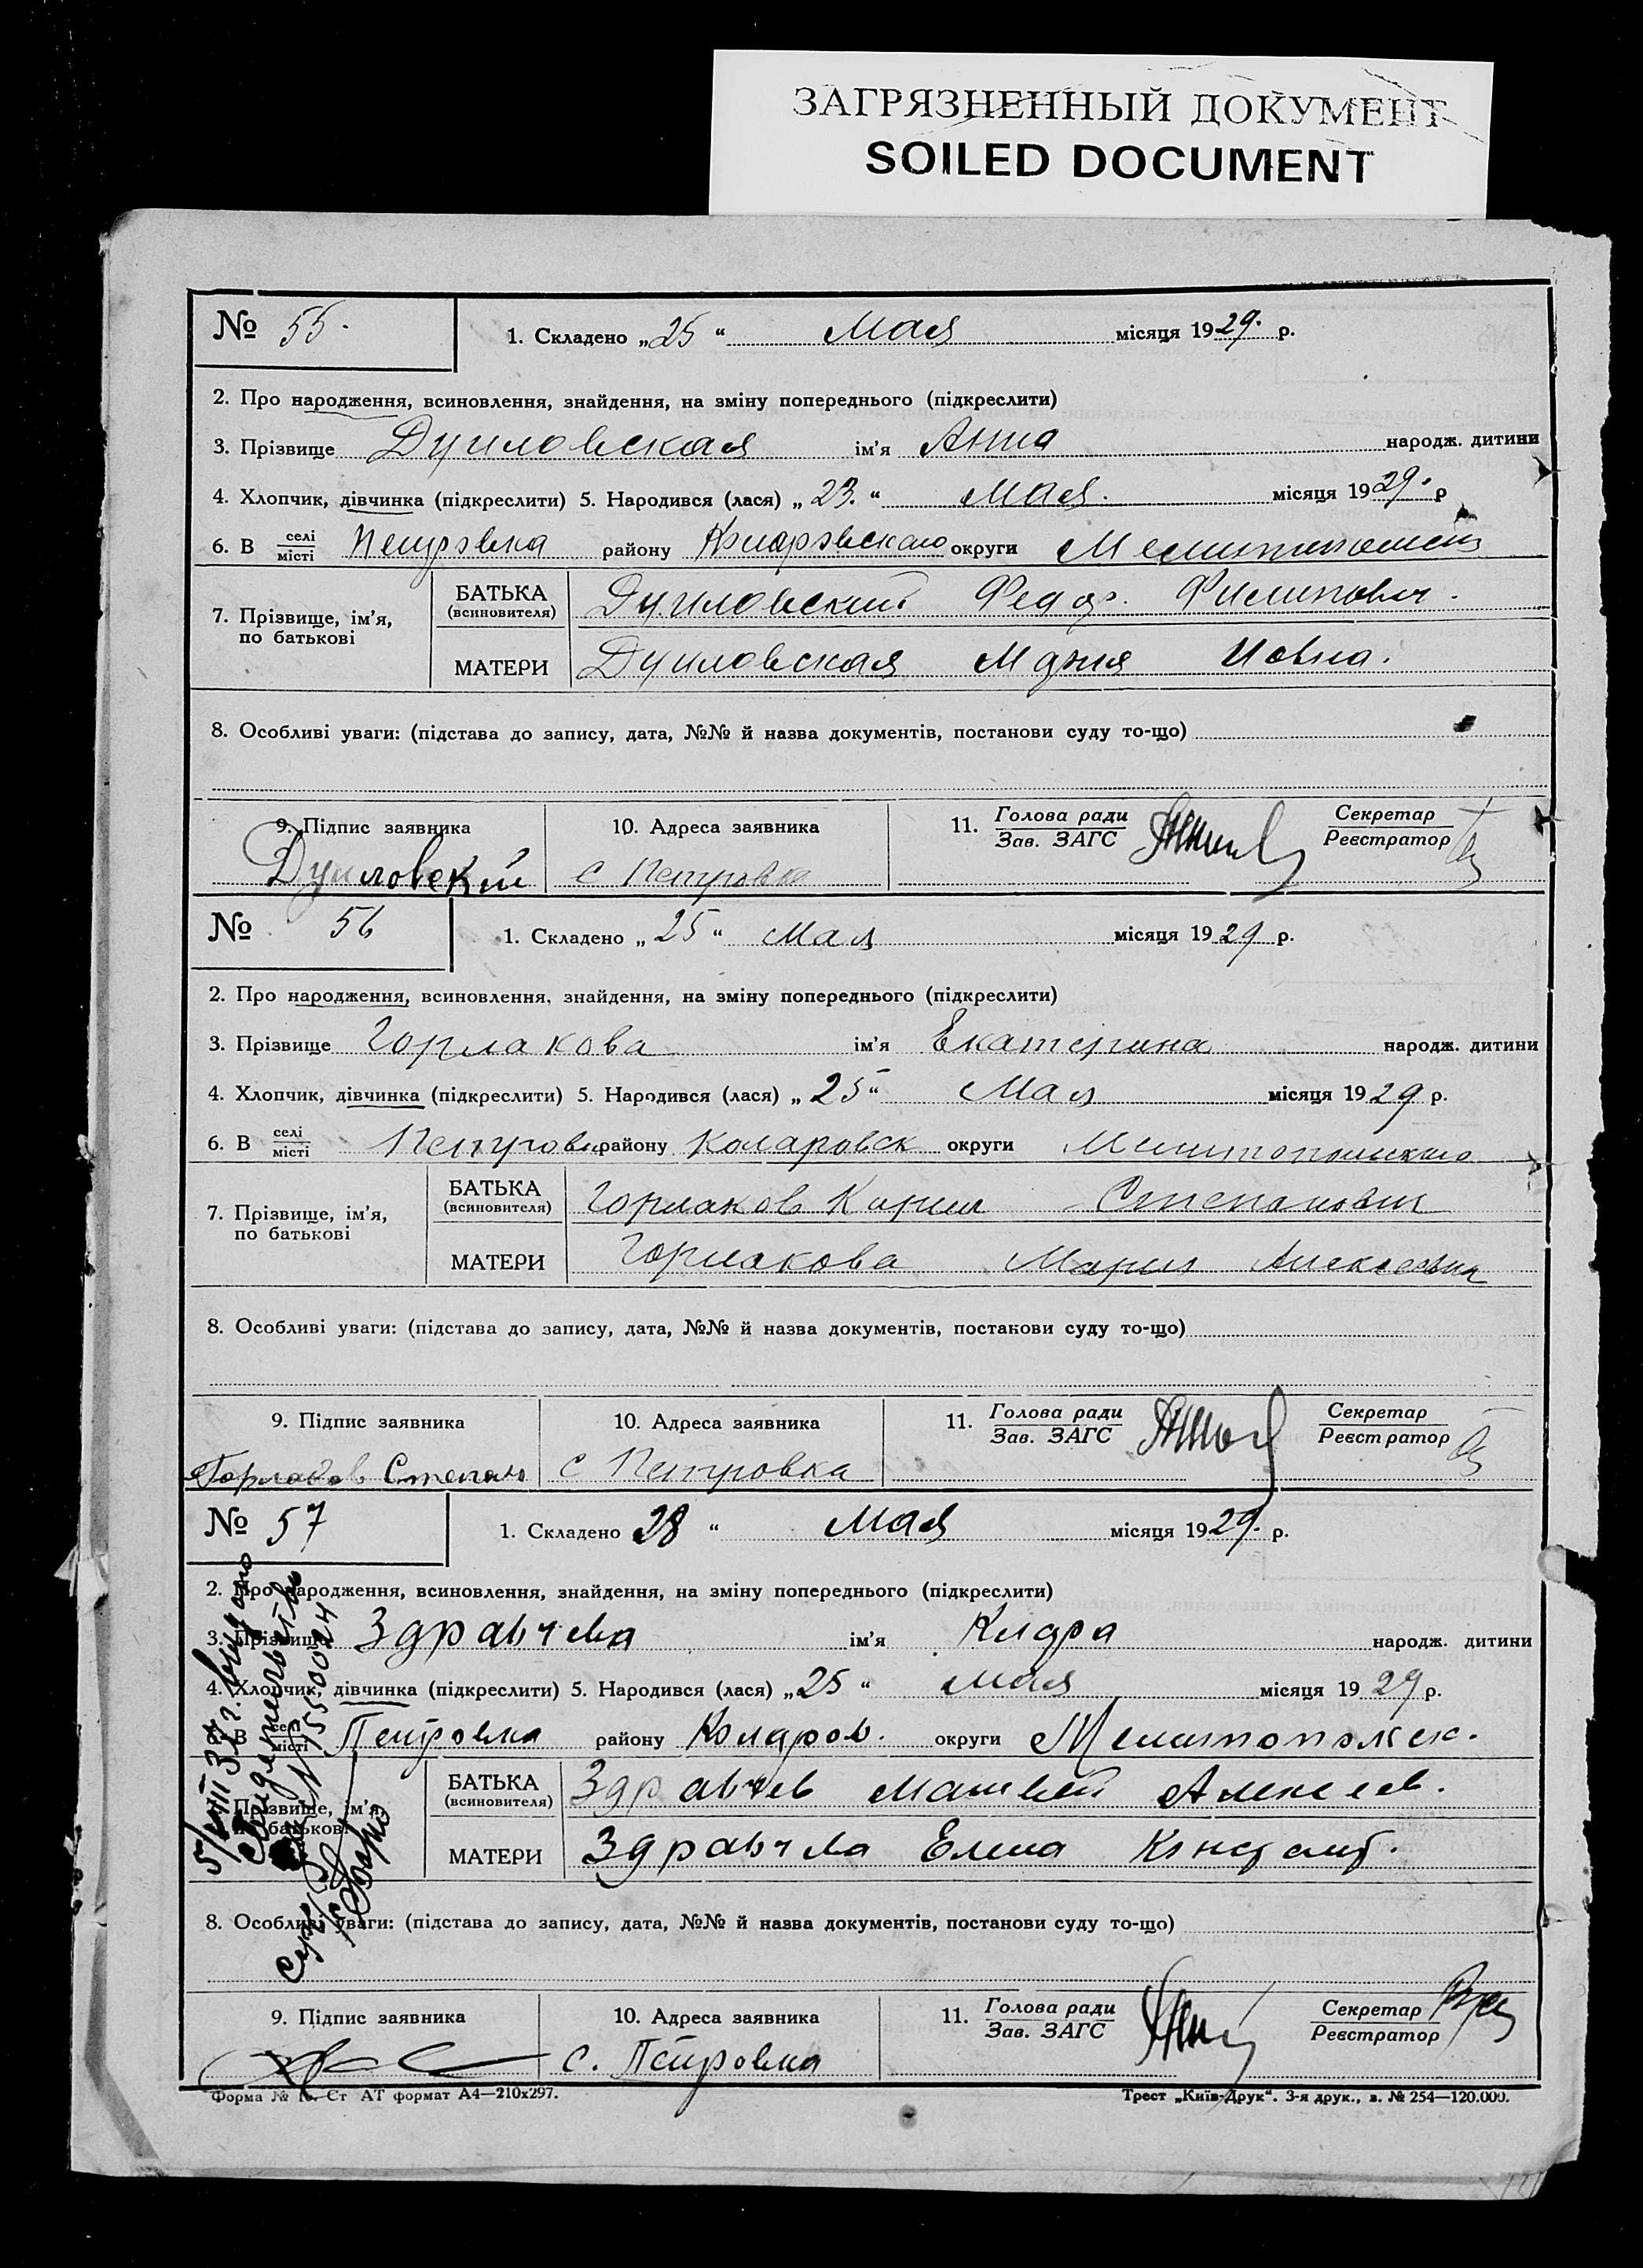 ЗАГРЯЗНЕННЫЙ ДОКУМЕНТ
SOILED DOCUMENT
№ 55. 1. Складено „25“ Мая місяця 1929. р.
2. Про народження, всиновлення, знайдення, на зміну попереднього (підкреслити)
3. Прізвище ім'я Анна народж. дитини
4. Хлопчик, дівчинка (підкреслити) 5. Народився (лася) „23.“ мая. місяця 1929. р
6. В селі місті Петровка району округи
7. Прізвище, ім'я, по батькові
БАТЬКА (всиновителя) Федор. Филипович.
МАТЕРИ Мария Иовна.
8. Особливі уваги: (підстава до запису, дата, №№ й назва документів, постанови суду то-що)
9. Підпис заявника 10. Адреса заявника 11. Голова ради Зав. ЗАГС Секретар Реєстратор
с Петровка
№ 56 1. Складено „25“ Мая місяця 1929 р.
2. Про народження, всиновлення, знайдення, на зміну попереднього (підкреслити)
3. Прізвище Горлакова ім'я Екатерина народж. дитини
4. Хлопчик, дівчинка (підкреслити) 5. Народився (лася) „25“ Мая місяця 1929 р.
6. В селі місті району Коларовск округи
7. Прізвище, ім'я, по батькові
БАТЬКА (всиновителя) Горлаков Кирил Степанович
МАТЕРИ Горлакова Мария Алексеевна
8. Особливі уваги: (підстава до запису, дата, №№ й назва документів, постанови суду то-що)
9. Підпис заявника 10. Адреса заявника 11. Голова ради Зав. ЗАГС Секретар Реєстратор
Степан с Петровка
№ 57 1. Складено 28“ мая місяця 1929. р.
2. Про народження, всиновлення, знайдення, на зміну попереднього (підкреслити)
3. Прізвище Здравчева ім'я Клара народж. дитини
4. Хлопчик, дівчинка (підкреслити) 5. Народився (лася) „25“ мая місяця 1929 р.
6. В селі місті Петровка району Коларов. округи Мелитопольск.
7. Прізвище, ім'я, по батькові
БАТЬКА (всиновителя) Здравчев Матвей Алексеев.
МАТЕРИ Здравчева Елена
8. Особливі уваги: (підстава до запису, дата, №№ й назва документів, постанови суду то-що)
9. Підпис заявника 10. Адреса заявника 11. Голова ради Зав. ЗАГС Секретар Реєстратор
с. Петровка
Форма № Ст АТ формат А4—210х297. Трест „Київ-Друк“. 3-я друк., з. № 254—120.000.